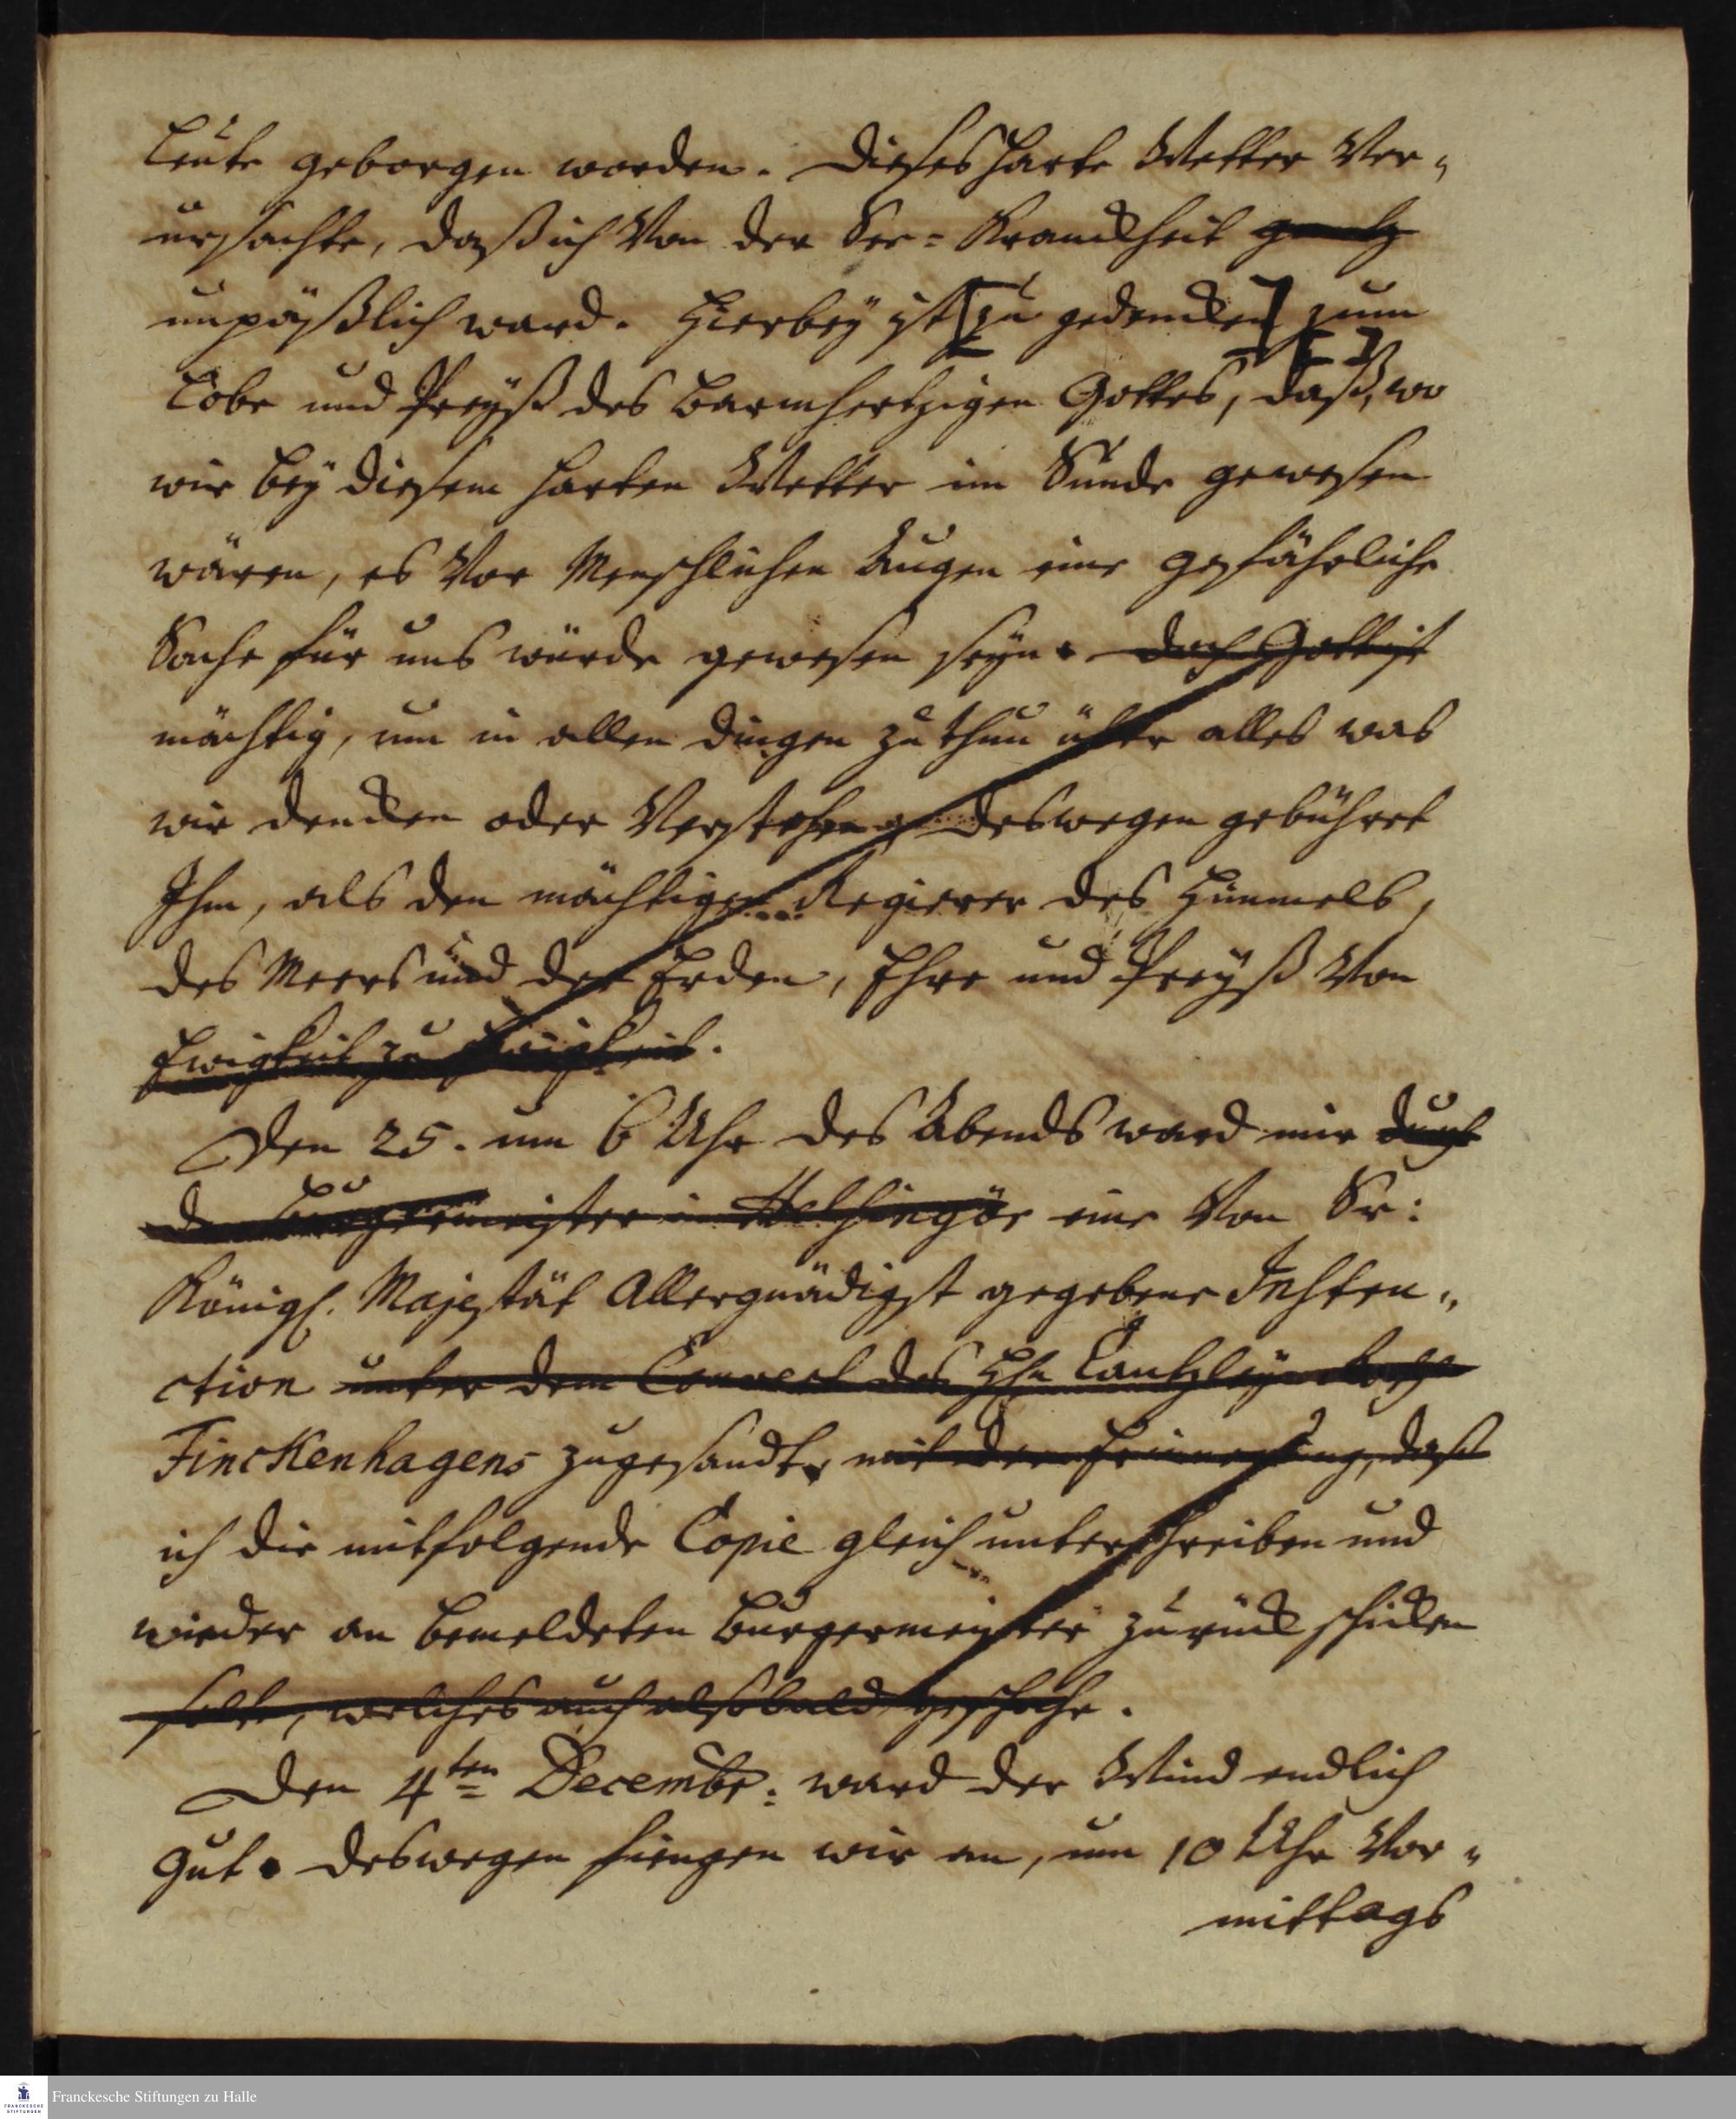 Leute geborgen worden. Dieses harte Wetter Ver-
ursachte, daß ich Von der See-Kranckheit gantz
unpäßlich ward. Hierbey ist [zu gedencken] zum
Lobe und Preyß des barmhertzigen Gottes, daß, wo
wir bey diesem harten Wetter im Sunde gewesen
wären, es Vor Menschlichen Augen eine gefährliche
Sache für uns würde gewesen seyn. doch Gott ist
mächtig, um in allen dingen zu thun über alles was
wir dencken oder Verstehen, deswegen gebühret
Ihm, als den mächtigen Regierer des Himmels,
des Meers und der Erden, Ehre und Preyß Von
Ewigkeit zu Ewigkeit.
Den 25. um 6 Uhr des Abends ward mir durch
den Burgermeister in Helsingör eine Von Sr:
Königl. Majestät Allergnädigst gegebene Instru-
ction unter dem Couvert des Hhn Cantzley-Raths
Finckenhagens zugesandt, mit der Erinnerung, daß
ich die mitfolgende Copie gleich unterschreiben und
wieder an bemeldeten Burgermeister zurück schicken
solte, welches auch alsobald geschahe.
Den 4ten Decembr: ward der Wind endlich
gut. deswegen fiengen wir an, um 10 Uhr Vor-
mittags
Franckesche Stiftungen zu Halle
FRANCKESCHE
STIFTUNGEN